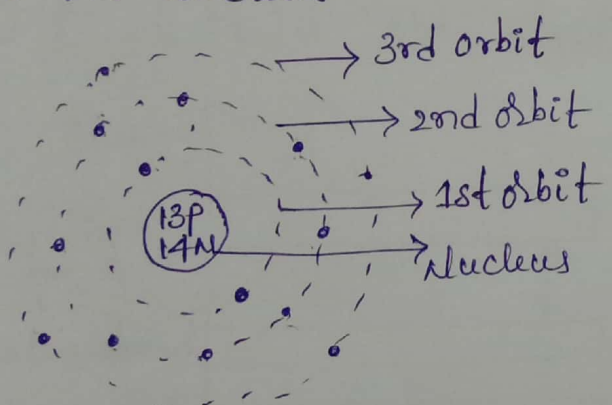 3rd orbit
2nd orbit
1st orbit
13P
14N
Nucleus